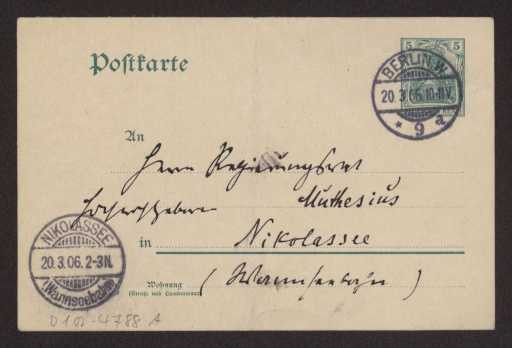 Postkarte
5 5
BERLIN. W.
20.3.06.10-11V.
* 9 a
An
Herrn Regierungsrat
Hochwohlgeboren Muthesius
in Nikolassee
(Wannseebahn)
Wohnung
(Straße und Hausnummer)
NIKOLASSEE
20.3.06.2-3N.
(Wannseebahn)
D 102-4788 A